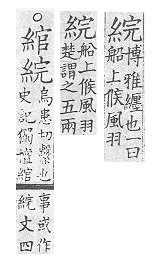 綄博雅纒也一曰
船上候風羽
綄船上候風羽
楚謂之五兩
○綰綄烏患切繫也
史記獨擅綰
事或作
綄文四